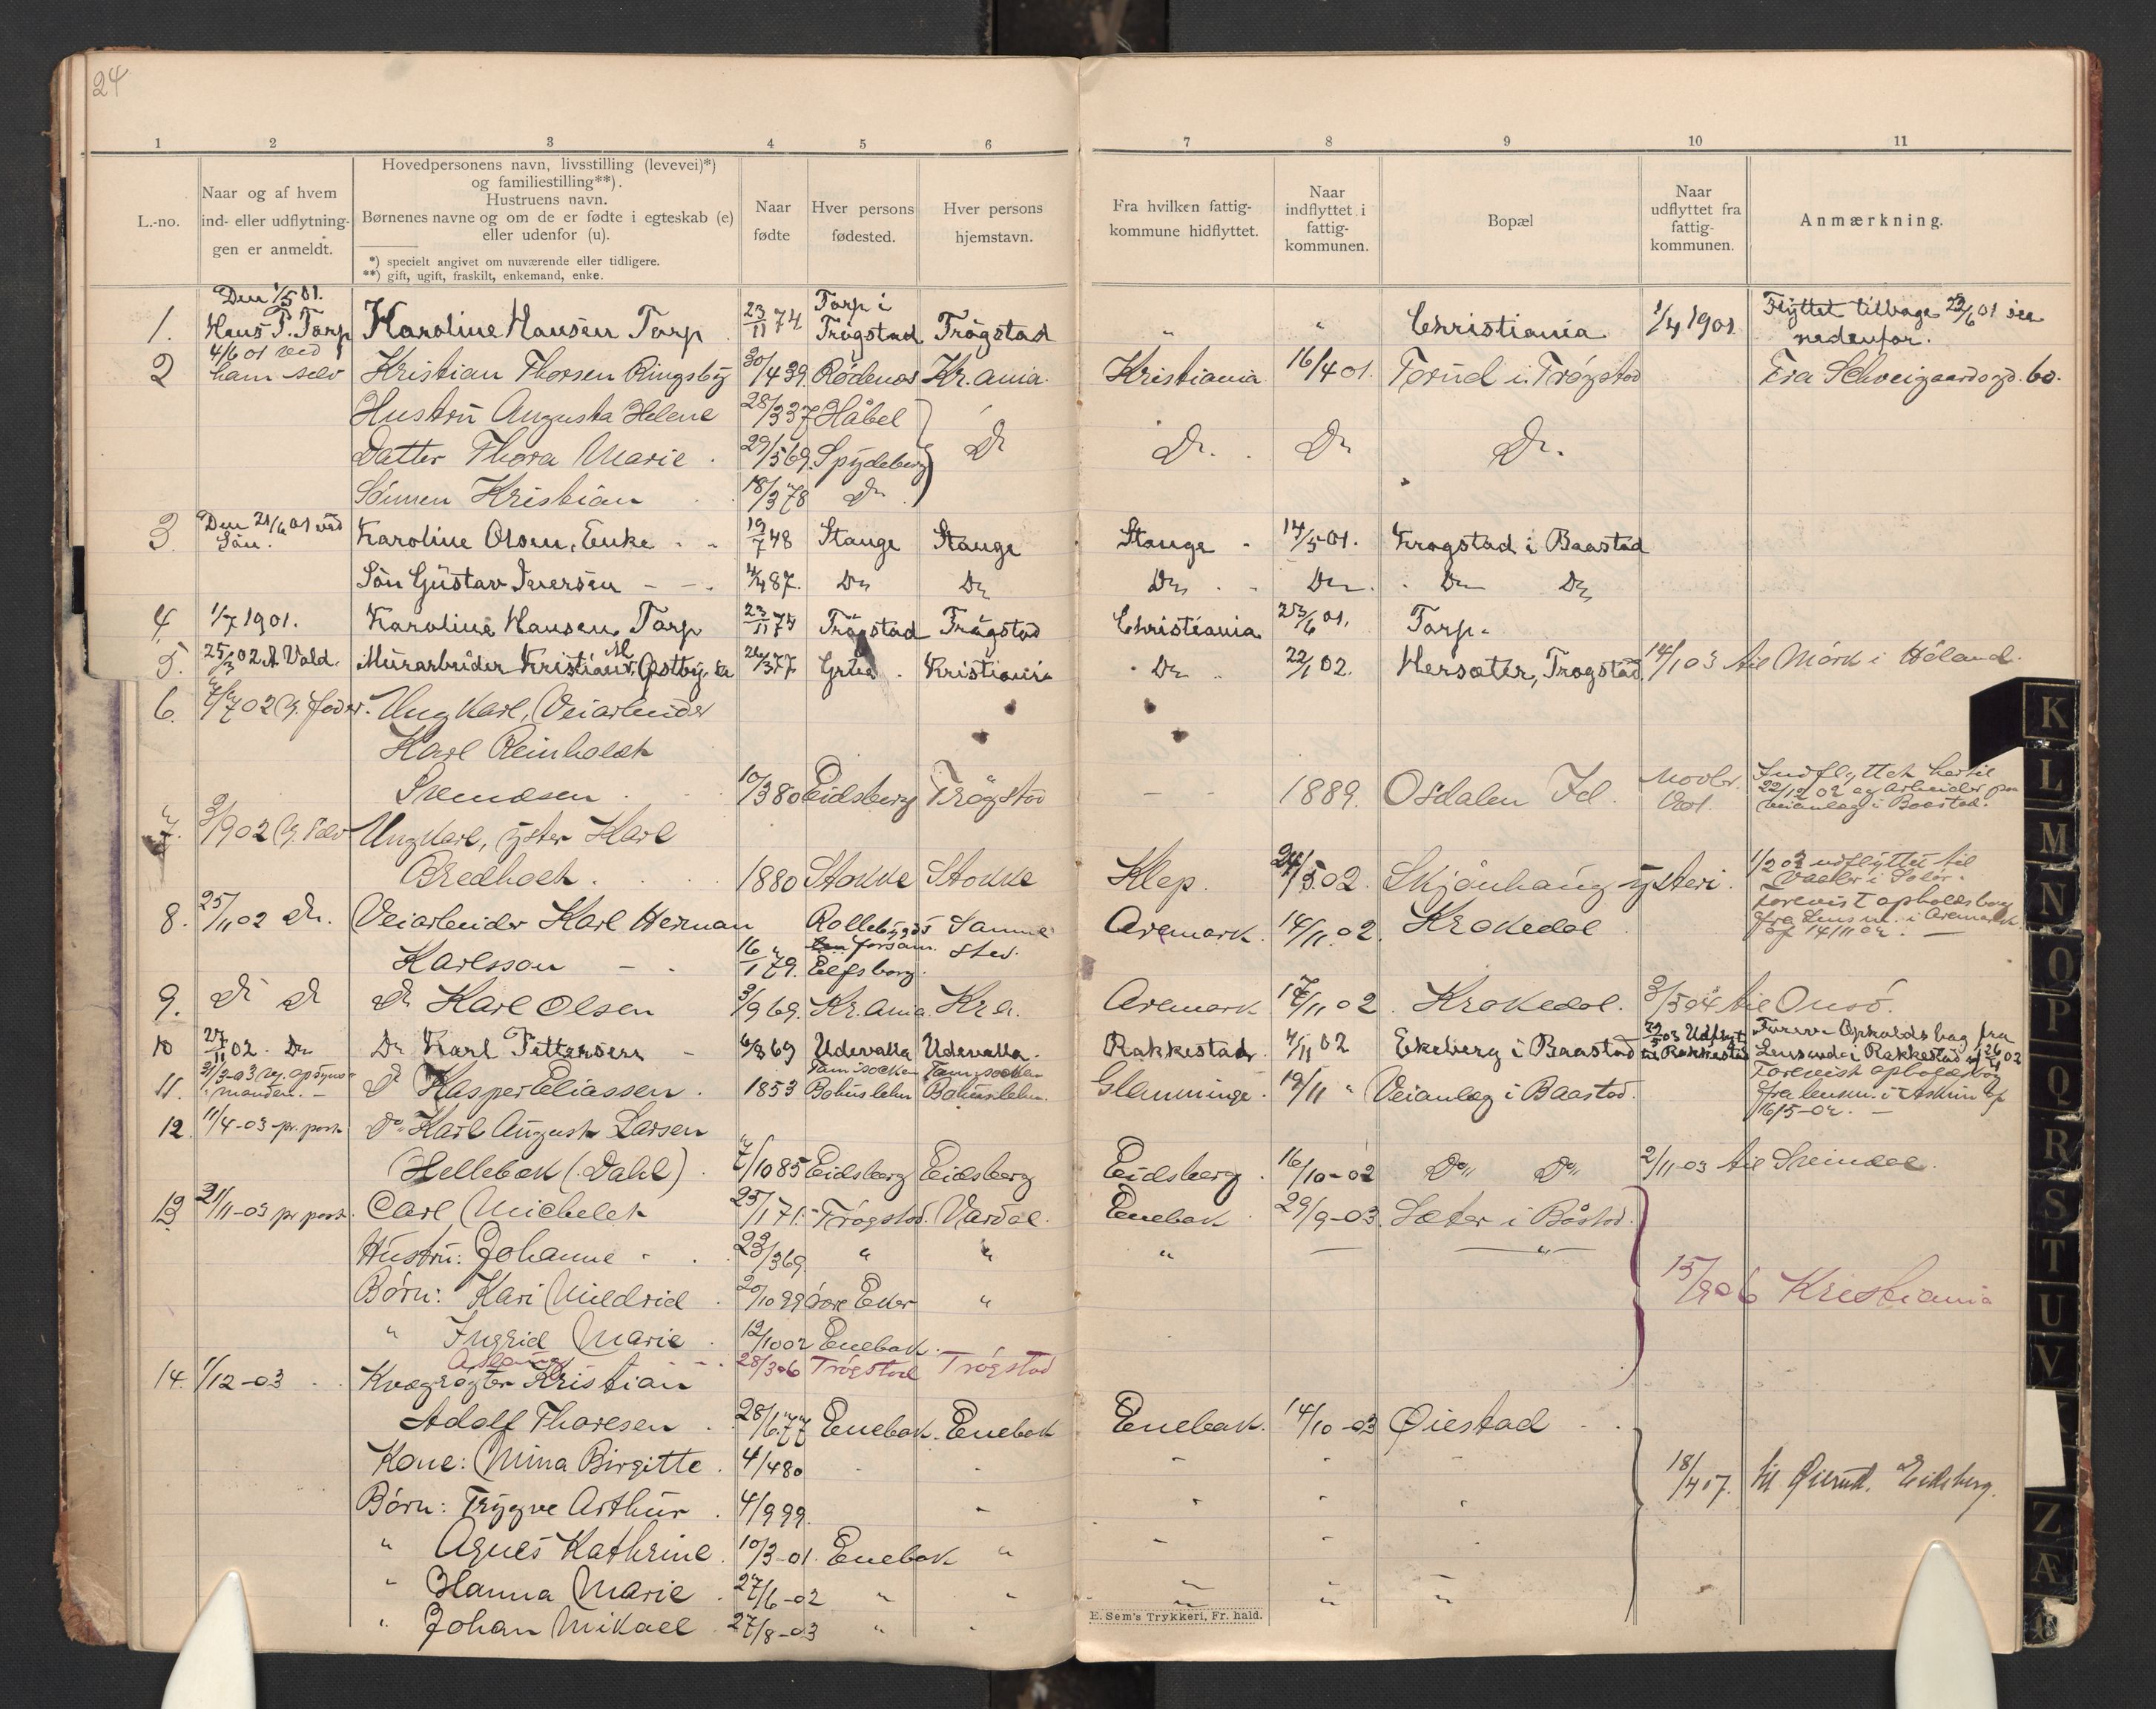 24
1 2 3 4 5 6 7 8 9 10 11
L.-no.
Naar og af hvem
ind- eller udflytnin-
gen er anmeldt.
Hovedpersonens navn, livsstilling (levevei)*)
og familiestilling**).
Hustruens navn.
Børnenes navne og om de er fødte i egteskab (e)
eller udenfor (u).
*) specielt angivet om nuværende eller tidligere.
**) gift, ugift, fraskilt, enkemand, enke.
Naar
fødte
Hver persons
fødested.
Hver persons
hjemstavn.
Fra hvilken fattig-
kommune hidflyttet.
Naar
indflyttet i
fattig-
kommunen.
Bopæl
Naar
udflyttet fra
fattig-
kommunen.
Anmærkning.
Den 1/5 01.
1. Hans P. Torp Karoline Hansen Torp 23/11 74 Torp i Trøgstad Trøgstad " " Christiania 1/4 1901 Flyttet tilbage 23/6 01 see nedenfor.
2 4/6 01 ved ham selv Kristian Thorsen Ringsby 30/4 39 Rødenes Kr.ania. Kristiania 16/4 01. Torud i Trøgstad Fra Schweigaardsgd. 60.
Hustru Augusta Helene 28/3 37 Håbel
Datter Thora Marie 29/5 69. Spydeberg Do Do. Do Do.
Sønnen Kristian 18/3 78 Do
3. Den 21/6 01 ved Søn. Karoline Olsen, Enke 19/7 48 Stange Stange Stange 14/5 01. Krogstad i Baastad
Søn Gustav Iversen 4/4 87. Do Do Do Do Do Do
4 1/7 1901. Karoline Hansen Torp 23/11 74 Trøgstad Trøgstad Christiania 23/6 01. Torp.
5. 25/3 02 A Vold. Murarbeider Kristian M. Østby 26/3 77 Kristiania Do 22/1 02. Hersæter, Trøgstad 14/1 03 til Mørk i Høland.
6. 4/7 02 g. fader. Ungkarl, Veiarbeider
Karl Reinholdt
Svendsen 10/3 80 Eidsberg Trøgstad 1889. Osdalen Id. Novbr. 1901. Indflyttet hertil 22/12 02 og arbeider paa veianlæg i Baastad.
7. 3/9 02 g. selv Ungkarl, yster Karl
Bredholt 1880 Stokke Stokke Klep. 24/5 02. Skjønhaug ysteri. 1/2 03 udflyttet til Vaaler i Solør.
8. 25/11 02 do. Veiarbeider Karl Herman
Karlsson 16/1 79. Rollebygds forsam. Elfsborg. Samme sted. Aremark. 14/11 02. Krokedal Forevist opholdsbog fra Lensm. i Aremark af 14/11 02.
9. do do Do Karl Olsen 3/9 69. Kr.ania. Kra. Aremark 17/11 02. Krokedal. 3/5 04 til Onsø.
10 27/11 02. Do Do Karl Pettersen 6/8 69 Udevalla Udevalla. Rakkestad. 7/11 02 Ekeberg i Baastad 03 Udflyt. til Rakkestad Forev. Opholdsbog fra Lensmd. i Rakkestad af 26/4 02
11. 31/3-03 v. opsynsmanden. Do Kasper Eliassen 1853 Bohuslehn Bohuslehn. Glemminge 19/11 " Veianlæg i Baastad. Forevist opholdsbog fra lensm. i Askim af 16/5-02.
12. 11/4-03 pr. post. Do Karl August Larsen
Hellebæk (Dahl) 7/10 85 Eidsberg Eidsberg Eidsberg 16/10-02 Do Do 2/11-03 til Sveindal.
13 21/11-03 pr post. Carl Michelet 25/1 71. Trøgstad. Vardal. Enebak 29/9-03. Sæter i Båstad.
Hustru: Johanne 23/3 69 " " " "
Børn: Kari Mildrid 20/10 99 Øvre Eker " 15/9 06 Kristiania
" Ingrid Marie 12/10 02 Enebak.
28/3 06 Trøgstad Trøgstad
14. 1/12-03 Kvægrøgter Kristian
Adolf Thoresen 28/6 77 Enebak. Enebak Enebak. 14/10-03 Øiestad
Kone: Mina Birgitte 4/4 80 18/4 07. til Øierud, Eidsberg.
Børn: Trygve Arthur 4/9 99.
" Agnes Kathrine 10/3-01. Enebak "
" Hanna Marie 27/6-02 " " " " "
" Johan Mikael 27/8-03 " "
E. Sem's Trykkeri, Fr. hald.
K
L
M
N
O
P
Q
R
S
T
U
V
Z
Æ
Ø